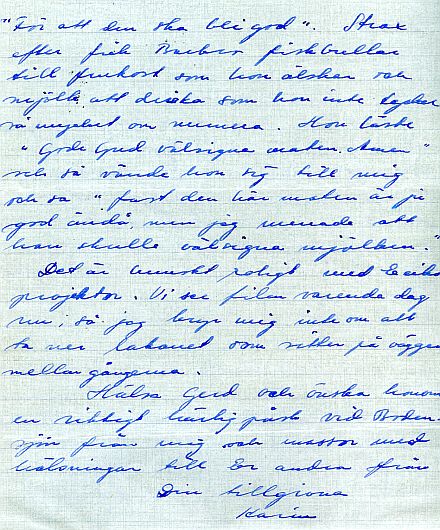 "För att den ska bli god". Strax
efter fick Barbro fiskbullar
till frukost som hon älskar och
mjölk att dricka som hon inte tycker
så mycket om numera. Hon läste
"Gode Gud välsigna maten. Amen"
och så vände hon sig till mig
och sa "fast den här maten är ju
god ändå, men jag menade att
han skulle välsigna mjölken."
Det är hemskt roligt med
projektor. Vi ser film varenda dag
nu, så jag bryr mig inte om att
ta ner lakanet som sitter på väggen
mellan gångerna.
Hälsa Gerd och önska honom
en riktigt härlig påsk vid Boden-
sjön från mig och massor med
hälsningar till Er andra från
Din tillgivna
Karin